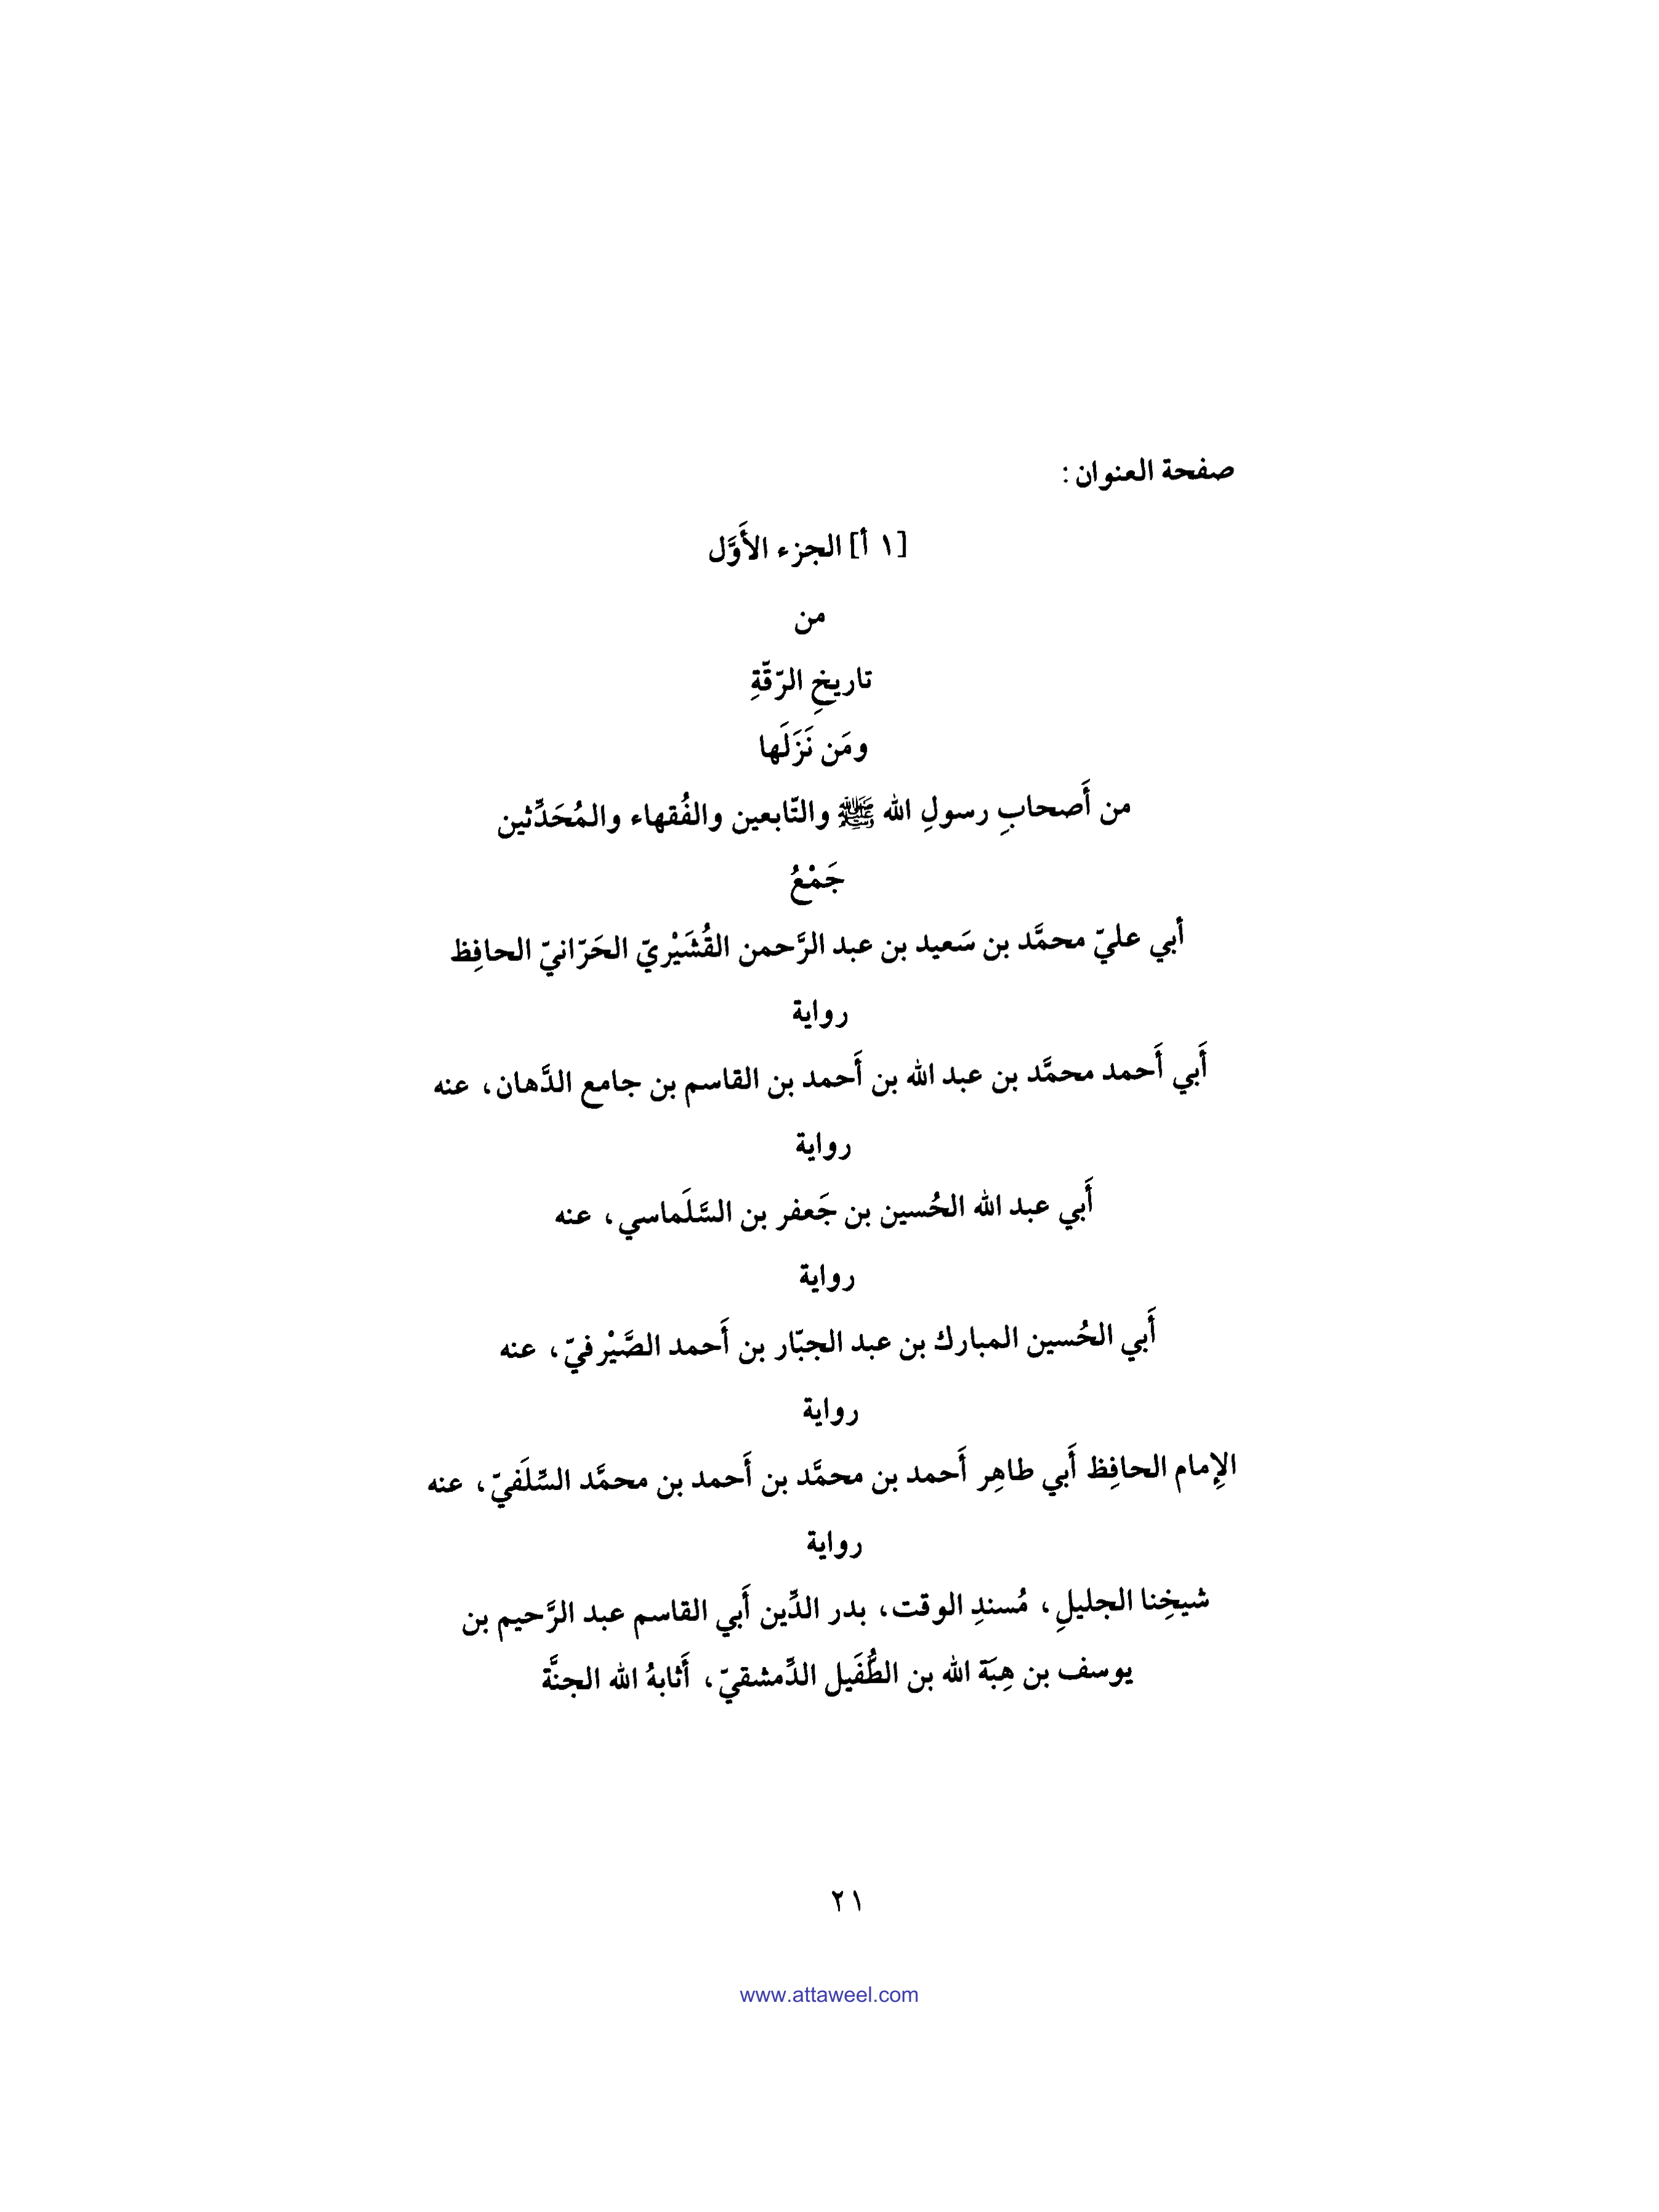 صفحة العنوان :
[١ أ] الجزء الأَوَّل
من
تاريخِ الرّقّةِ
ومَن نَزَلَها
من أَصحابِ رسولِ الله ﷺ والتّابعين والفُقهاء والمُحَدِّثين
جَمْعُ
أبي عليّ محمَّد بن سَعيد بن عبد الرَّحمن القُشَيْريّ الحَرّانيّ الحافِظ
رواية
أَبي أَحمد محمَّد بن عبد الله بن أَحمد بن القاسم بن جامع الدَّهان، عنه
رواية
أَبي عبد الله الحُسين بن جَعفر بن السَّلَماسي، عنه
رواية
أَبي الحُسين المبارك بن عبد الجبّار بن أَحمد الصَّيْرفيّ، عنه
رواية
الإِمام الحافِظ أَبي طاهِر أَحمد بن محمَّد بن أَحمد بن محمَّد السِّلَفيّ، عنه
رواية
شيخِنا الجليلِ، مُسندِ الوقت، بدر الدِّين أَبي القاسم عبد الرَّحيم بن
يوسف بن هِبَة الله بن الطُّفَيل الدِّمشقيّ، أَثابهُ الله الجنَّة
٢١
www.attaweel.com